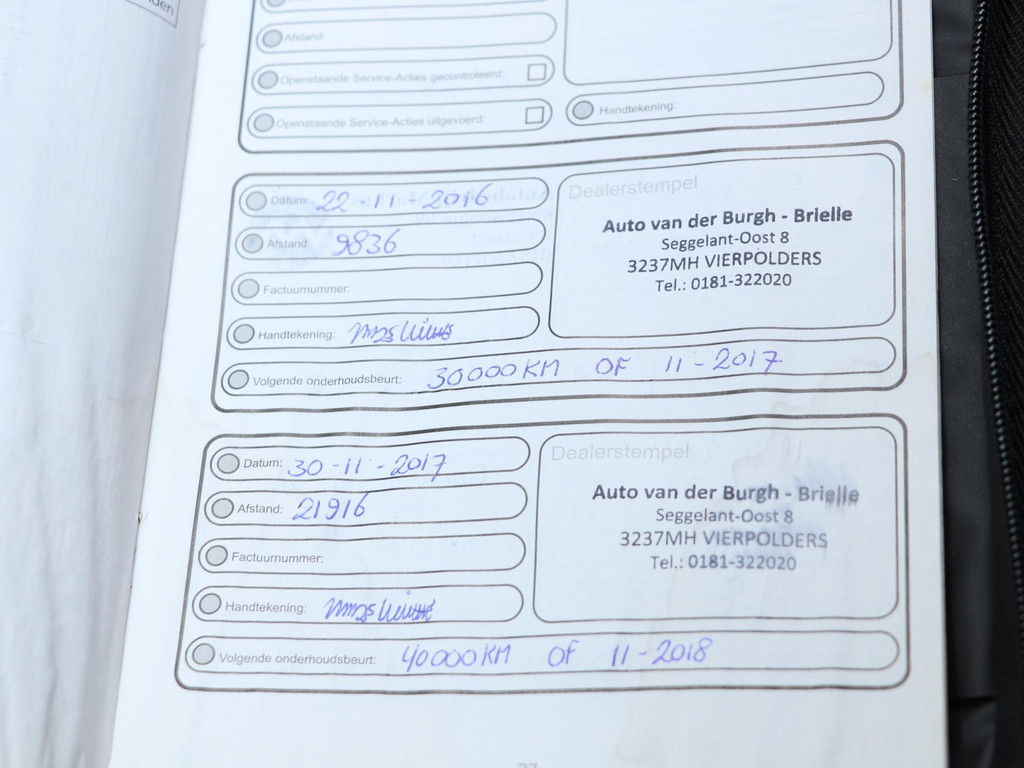 Afstand:
Openstaande Service-Acties gecontroleerd:
Openstaande Service-Acties uitgevoerd:
Handtekening:
Datum: 22-11-2016
Afstand: 9836
Factuurnummer:
Handtekening:
Dealerstempel
Auto van der Burgh - Brielle
Seggelant-Oost 8
3237MH VIERPOLDERS
Tel.: 0181-322020
Volgende onderhoudsbeurt: 30000KM OF 11-2017
Datum: 30-11-2017
Afstand: 21916
Factuurnummer:
Handtekening:
Dealerstempel
Auto van der Burgh - Brielle
Seggelant-Oost 8
3237MH VIERPOLDERS
Tel.: 0181-322020
Volgende onderhoudsbeurt: 40000KM OF 11-2018